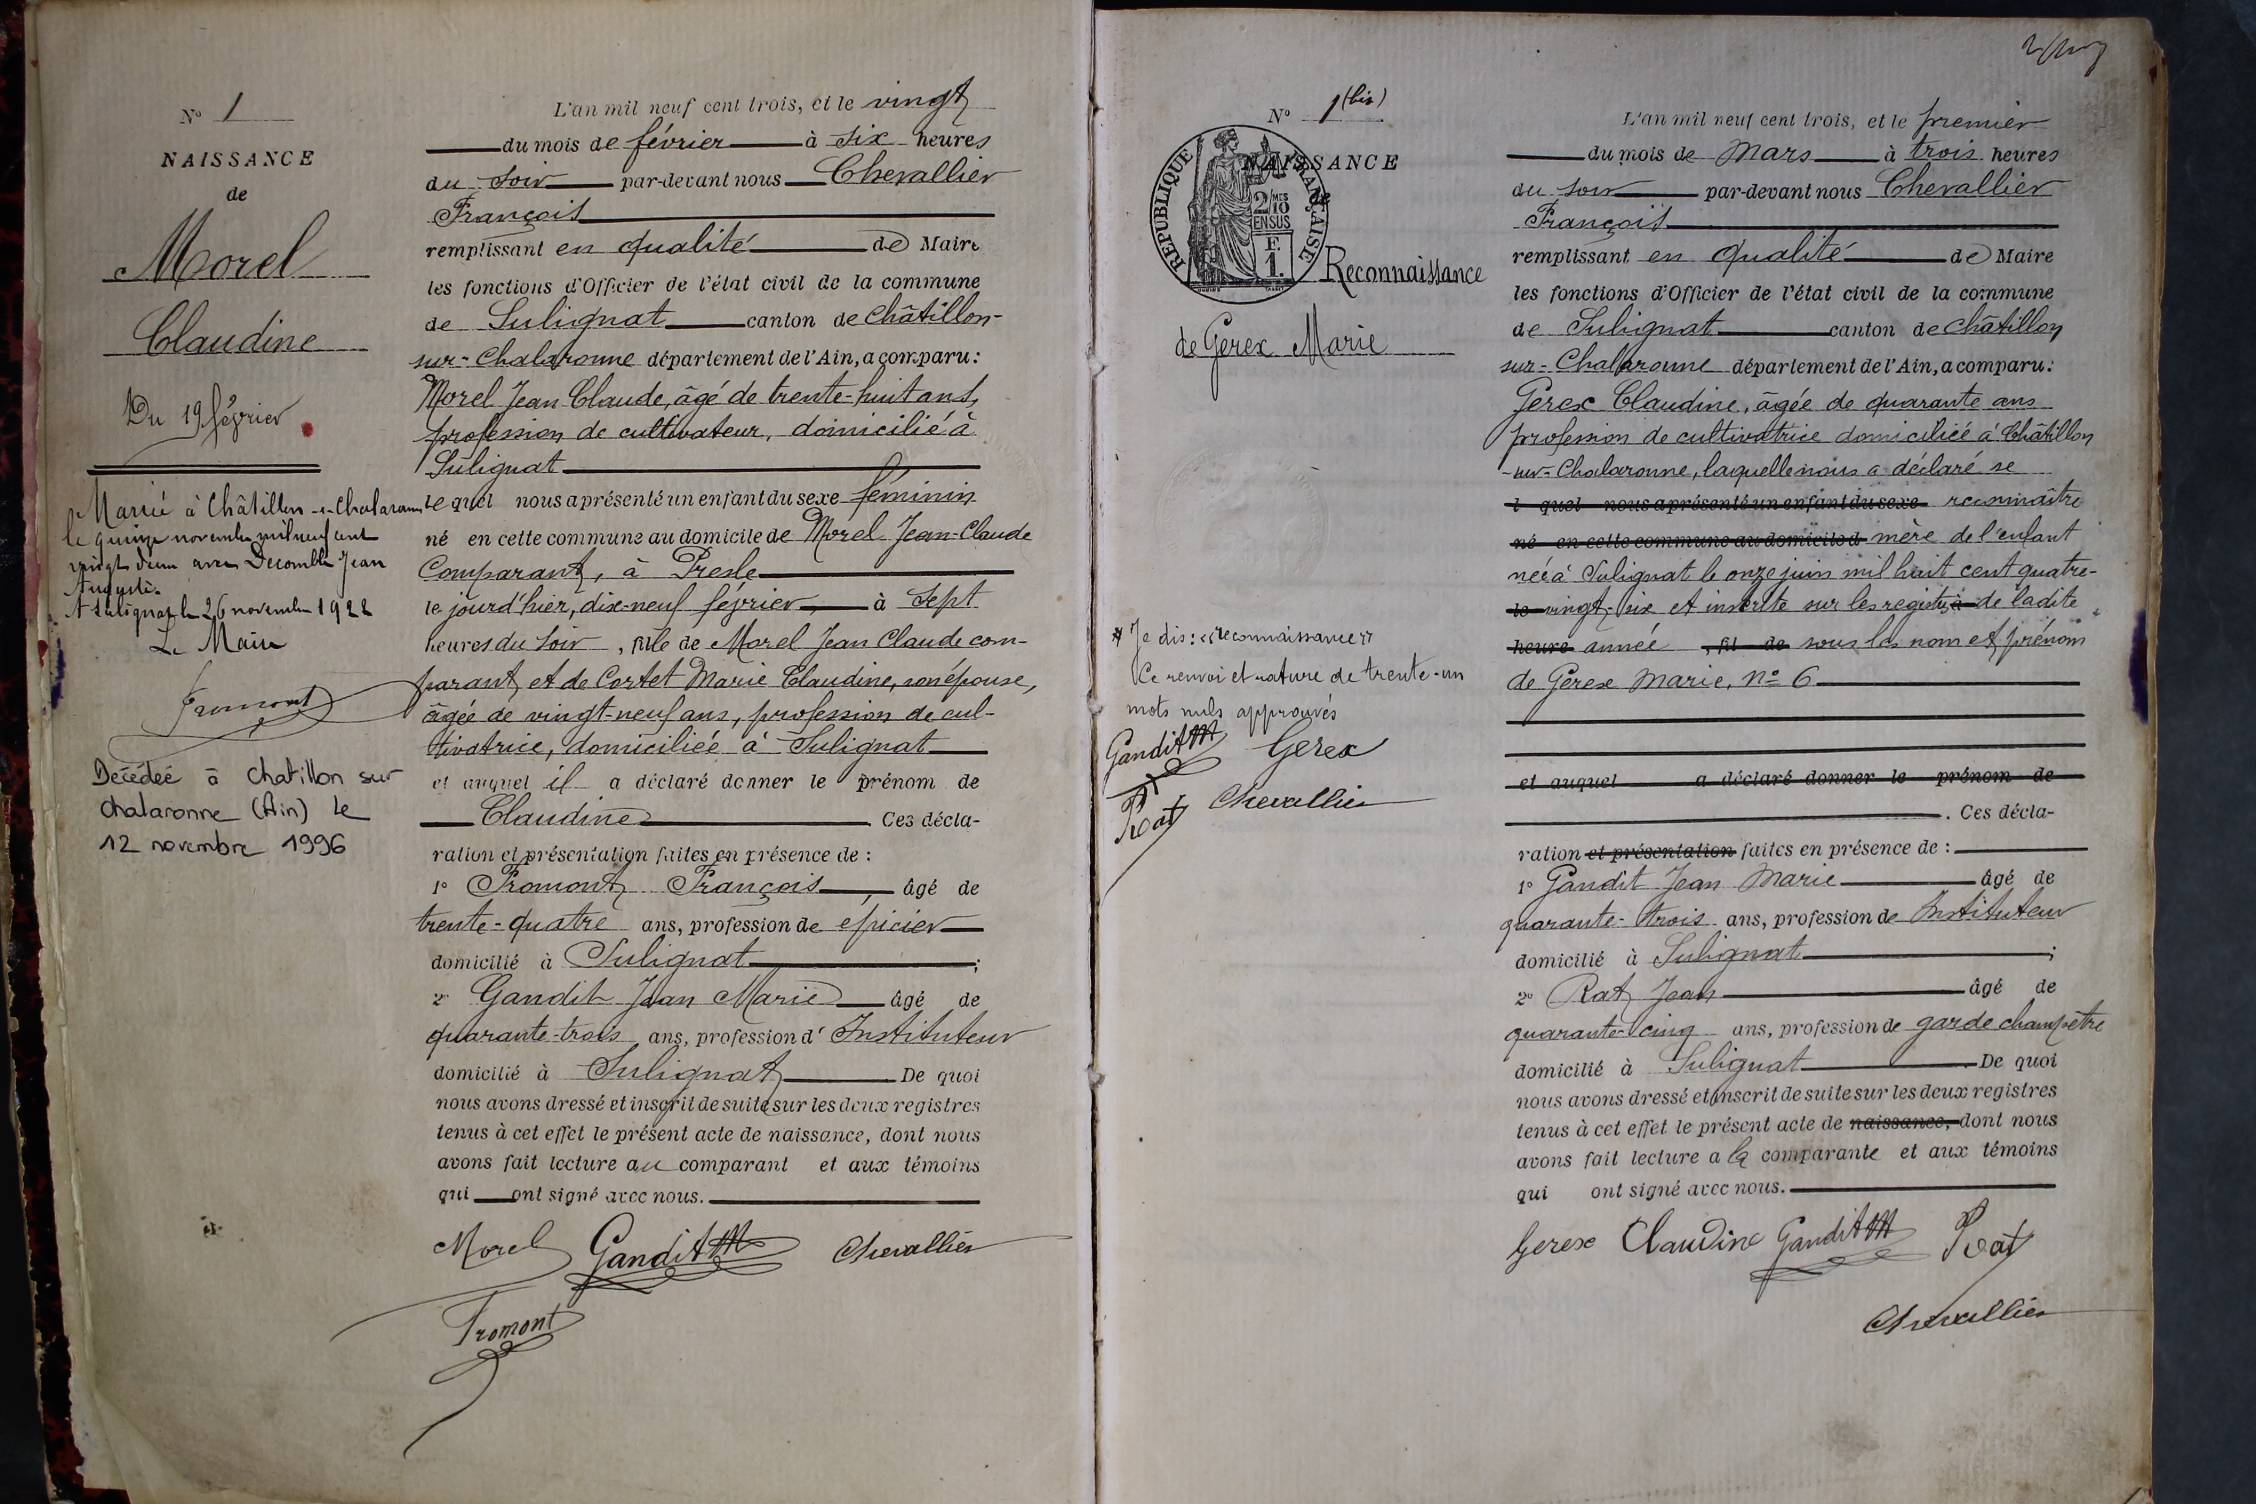 N° 1
NAISSANCE
de
Morel
Claudine
Du 19 février
Mariée à Châtillon-s-Chalaronne
le quinze novembre mil neuf cent
vingt deux avec Decomble Jean
Auguste.
A Sulignat le 26 novembre 1922
Le Maire
Fromont
Décédée à Chatillon sur
Chalaronne (Ain) le
12 novembre 1996
L'an mil neuf cent trois, et le vingt
du mois de février à six heures
du soir par-devant nous Chevallier
François
remplissant en qualité de Maire
les fonctions d'Officier de l'état civil de la commune
de Sulignat canton de Châtillon-
sur-Chalaronne département de l'Ain, a comparu:
Morel Jean Claude, âgé de trente-huit ans,
profession de cultivateur, domicilié à
Sulignat
lequel nous a présenté un enfant du sexe féminin
né en cette commune au domicile de Morel Jean-Claude
Comparant, à Presle
le jourd'hier, dix-neuf février, à sept
heures du soir, fille de Morel Jean Claude com-
parant et de Cortet Marie Claudine, son épouse,
âgée de vingt-neuf ans, profession de cul-
tivatrice, domiciliée à Sulignat
et auquel il a déclaré donner le prénom de
Claudine Ces décla-
ration et présentation faites en présence de :
1° Fromont François, âgé de
trente-quatre ans, profession de épicier
domicilié à Sulignat ;
2° Gandit Jean Marie âgé de
quarante-trois ans, profession d' Instituteur
domicilié à Sulignat De quoi
nous avons dressé et inscrit de suite sur les deux registres
tenus à cet effet le présent acte de naissance, dont nous
avons fait lecture au comparant et aux témoins
qui ont signé avec nous.
Morel Gandit JM Chevallier
Fromont
N° 1 (bis)
NAISSANCE
de
RÉPUBLIQUE FRANÇAISE
2/10
EN SUS
F.
1.
Reconnaissance
de Gerex Marie
* Je dis: "reconnaissance"
Ce renvoi et rature de trente-un
mots nuls approuvés
Gandit JM Gerex
Rat Chevallier
L'an mil neuf cent trois, et le premier
du mois de Mars à trois heures
du soir par-devant nous Chevallier
François
remplissant en qualité de Maire
les fonctions d'Officier de l'état civil de la commune
de Sulignat canton de Châtillon
sur-Chalaronne département de l'Ain, a comparu:
Gerex Claudine, âgée de quarante ans
profession de cultivatrice domiciliée à Châtillon
-sur-Chalaronne, laquelle nous a déclaré se
l quel nous a présenté un enfant du sexe reconnaître
né en cette commune au domicile d mère de l'enfant
née à Sulignat le onze juin mil huit cent quatre-
le vingt-six et inscrite sur les registres à de ladite
heure année , fil de sous les nom et prénom
de Gerex Marie, n° 6
et auquel a déclaré donner le prénom de
. Ces décla-
ration et présentation faites en présence de :
1° Gandit Jean Marie âgé de
quarante-trois ans, profession de Instituteur
domicilié à Sulignat ;
2° Rat Jean âgé de
quarante-cinq ans, profession de garde champêtre
domicilié à Sulignat De quoi
nous avons dressé et inscrit de suite sur les deux registres
tenus à cet effet le présent acte de naissance, dont nous
avons fait lecture a la comparante et aux témoins
qui ont signé avec nous.
Gerex Claudine Gandit JM Rat
Chevallier